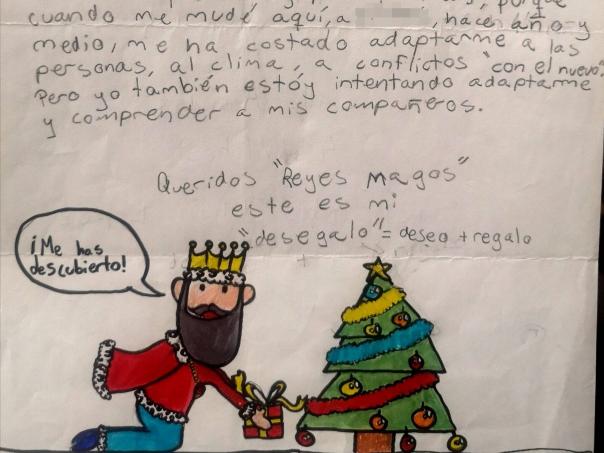 cuando me mudé aquí, a , hacen año y
medio, me ha costado adaptarme a las
personas, al clima, a conflictos "con el nuevo".
Pero yo también estóy intentando adaptarme
y comprender a mis compañeros.
Queridos "Reyes Magos"
este es mi
"desegalo" = deseo + regalo
¡Me has
descubierto!